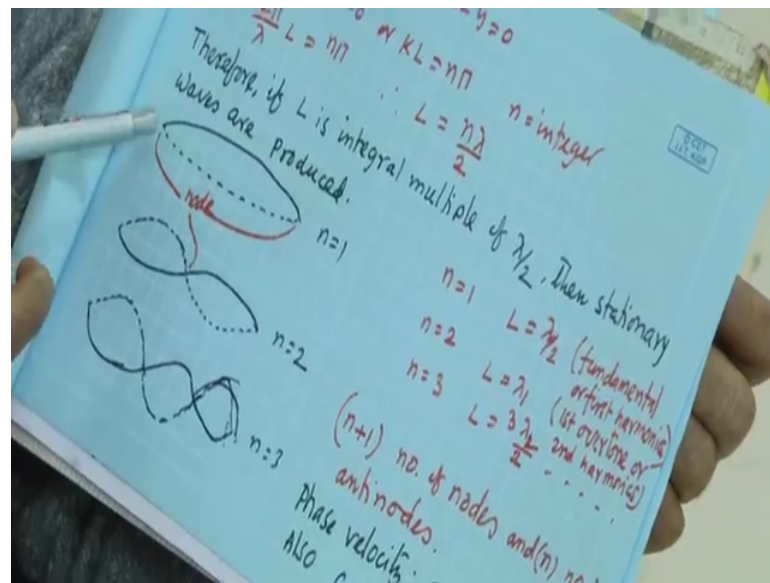 y=0
λ L = nπ or KL = nπ n = integer
∴ L = nλ/2
Therefore, if L is integral multiple of λ/2, then stationary
waves are produced.
node
n=1
n=2
n=3
n=1 L = λ/2 (fundamental
or first harmonics)
n=2 L = λ1 (1st overtone or
2nd harmonics)
n=3 L = 3 λ2/2 . . . . .
(n+1) no. of nodes and (n) no
antinodes.
Phase velocity:
Also